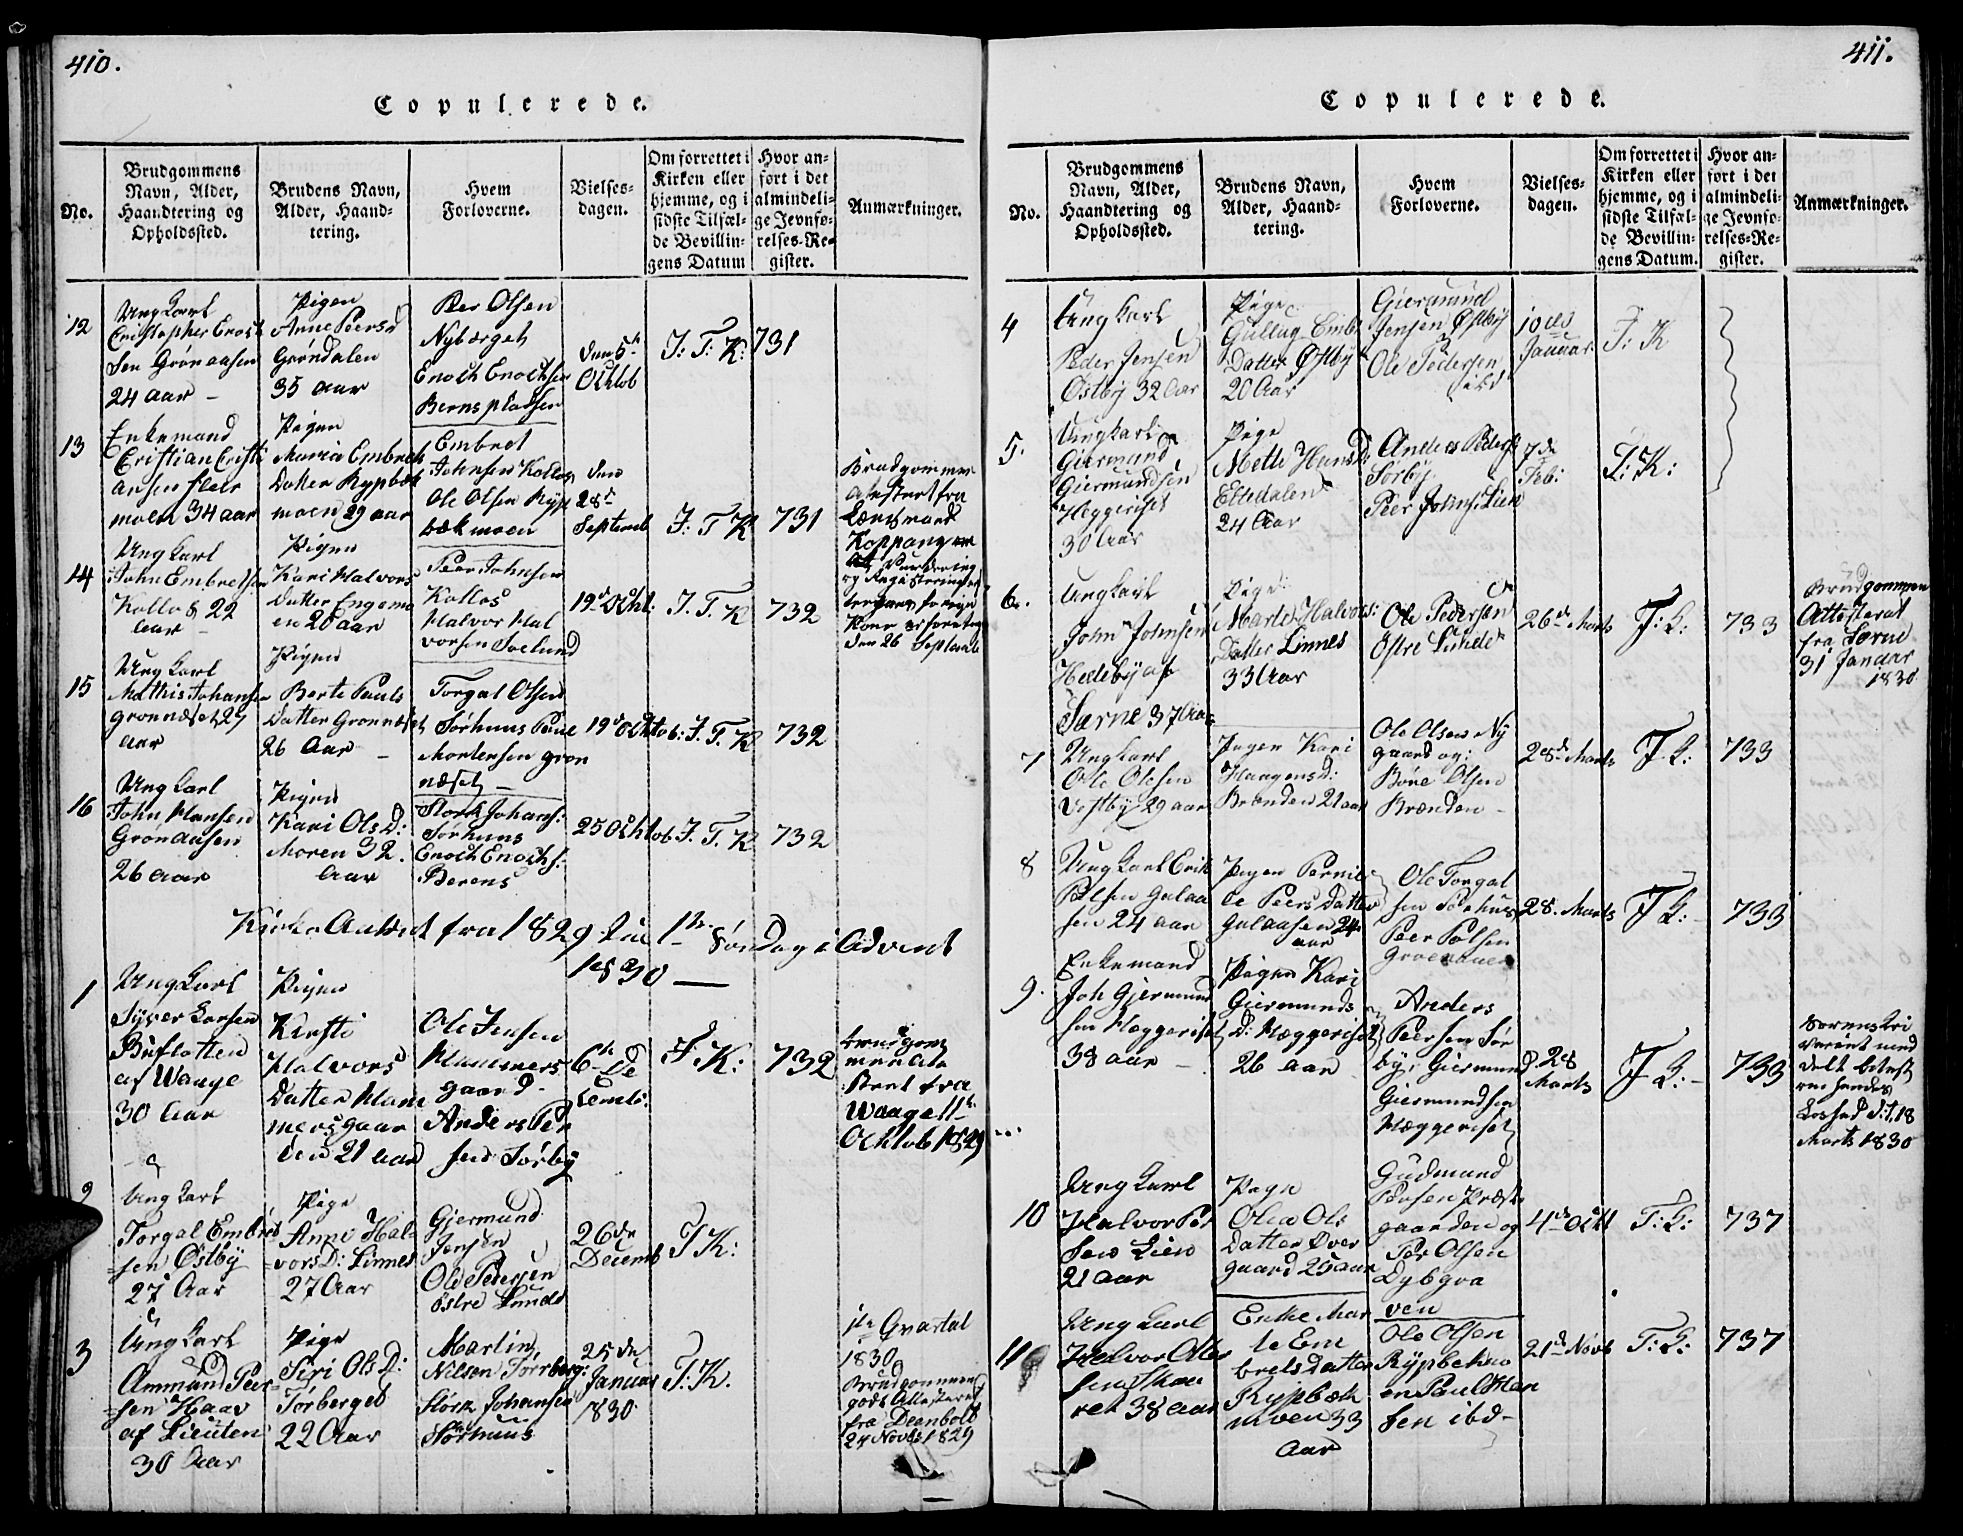 410.
Copulerede.
No.
Brudgommens
Navn, Alder,
Haandtering og
Opholdssted.
Brudens Navn,
Alder, Haand-
tering.
Hvem
Forloverne.
Vielses-
dagen.
Om forrettet i
Kirken eller
hjemme, og i
sidste Tilfæl-
de Bevillin-
gens Datum
Hvor an-
ført i det
almindeli-
ge Jevnfø-
relses-Re-
gister.
Anmærkninger.
12
Ung Karl
Cristopher Enock
Sen Grønaasen
24 aar
Pigen
Anne Peersd
Grøndalen
35 aar
Peer Olsen
Nyberget
Enoch Enochsen
Berns pladsen
den 5te
Ochtob
I: T: K:
731
13
Enkemand
Cristian Cristi
ansen fleer
moen 34 aar
Pigen
Maria Embreth
Datter Rypbek
moen 29 aar
Embret
Johnsen Kollos
Ole Olsen Ryp
bækmoen
den
28de
Septemb
I: T K
731
Brudgommen
atesteret fra
Lensmand
Koppang
at Vurdering
og Registrering
forrige
Kone er foretag
den 26 Septemb
14
Ung Karl
John Embretsen
Kollos 22
aar
Pigen
Kari Halvors
Datter Engemo
en 20 aar
Peer Johnsen
Kollos
Halvor Hal
vorsen Soelund
19de Ocht:
I. T. K
732
15
Ung Karl
Mathis Johansen
grønneset 27
aar
Pigen
Berte Pauls
Datter Grønneset
26 Aar
Torgal Olsen
Sørhuus Paul
Mortensen grøn
næset
19de Ochtob:
I. T. K
732
16
Ung Karl
John Hansen
Grønaasen
26 aar
Pigen
Kari Ols D:
Moren 32
Aar
Størk Johans:
Sørhuus
Enoch Enochs:
Berens
25 Ochtob
I. T. K
732
Kirke Aaret fra 1829 til 1ste Søndag i Advent
1830
1
Ung Karl
Syver Larsen
Bufletten
af Waage
30 Aar
Pigen
Kirsti
Halvors
Datter Ham
mersgaar
den 21 aar
Ole Jensen
Hammers
gaard
Anders Peder
sen Sørby
6te De
cemb:
I: K:
732
brudgom
men Ate
steret fra
Waage 11te
Ochtob 1829
2
Ung Karl
Torgal Embret
sen Østby
27 Aar
Pige
Anne Hal-
vorsD: Linnes
27 Aar
Gjermund
Jensen
Ole Pedersen
østre Sunde
26de
Decemb
I K:
3
Ung Karl
Ammund Peer
sen Haar
af Lieuten
30 Aar
Pige
Siri Ols D:
Torberget
22 Aar
Martin
Nilsen Torrberg:
Størk Johansen
Sørhuus
25de
Januar
1830
I: K.
1te Qvartal
1830
Brudgommen
gode Attesteret
fra
24 Novbr 1829
411.
Copulerede.
No.
Brudgommens
Navn, Alder,
Haandtering og
Opholdssted.
Brudens Navn,
Alder, Haand-
tering.
Hvem
Forloverne.
Vielses-
dagen.
Om forrettet i
Kirken eller
hjemme, og i
sidste Tilfæl-
de Bevillin-
gens Datum.
Hvor an-
ført i det
almindeli-
ge Jevnfø-
relses-Re-
gister.
Anmærkninger.
4
Ung Karl
Peder Jensen
Østby 32 Aar
Pige
Gullug Embr
Datter Østby
20 Aar
Giermund
Jensen Østby
Ole Pedersen
ibd
10de
Januar
I: K
5.
Ungkarl
Giermund
Giermundsen
Heggeriset
30 Aar
Pige
Mette Hans D:
Eltedalen
24 Aar
Anders Peders
Sørby
Peer Johns: Lien
7de
Feb:
I: K:
6.
Ungkarl
John Johnsen
Hedeby af
Særne 37 Aar
Pige
Marte Halvors:
Datter Linnes
33 Aar
Ole Pedersen
Østre Sunde
26de Marts
I: K:
733
Brudgommen
Attesterat
fra Særne
31 Janaar
1830
7
Ungkarl
Ole Olesen
Vestby 29 aar
Pigen Kari
Haagens D:
Brænden 21 aar
Ole Olsen Ny
gaard og:
Børe Olsen
Brænden
28de Marts
I K:
733
8
Ung Karl Erik
Polsen galaa
sen 24 aar
Pigen Pernil
le Peersdatter
galaasen 24
aar
Ole Torgal
sen Sørhuus
Peer Polsen
28. Marts
I K:
733
9.
Enkemand
Joh Gjermund
sen Heggeriset
38 aar
Pigen Kari
Giermunds
D: Heggeriset
26 aar
Anders
Peersen Sør
by, Giermund
Giermundsen
Heggeriset
d. 28
Marts
I K:
733
Sorenskri
veren med
delt
Marts 1830
10
Ung Karl
Halvor Per
sen Lien
21 aar
Pige
Olea Ols
datter Over
gaard 25 aar
Gudmund
Persen Præst
gaarden og
Per Olsen
Dybgra
ven
4de Ocht
I: K:
737
11
Ung Karl
Halvor Oles
sen Skaa
ret 38 aar
Enke Mar
te Em
bretsdatter
Rypbæk
moen 33
Aar
Ole Olsen
Rypbekmo
en Paul Han
sen ibd
21de Novb
I: K:
737